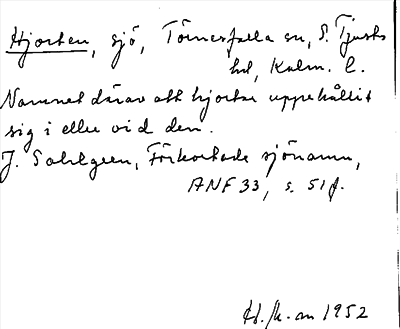 Hjorten, sjö, Törnesfalla sn, S. Tjusts
hd, Kalm. l.
Namnet därav att hjortar uppehållit
sig i eller vid den.
J. Sahlgren, Förkortade sjönamn,
ANF 33, s. 51 f.
1952